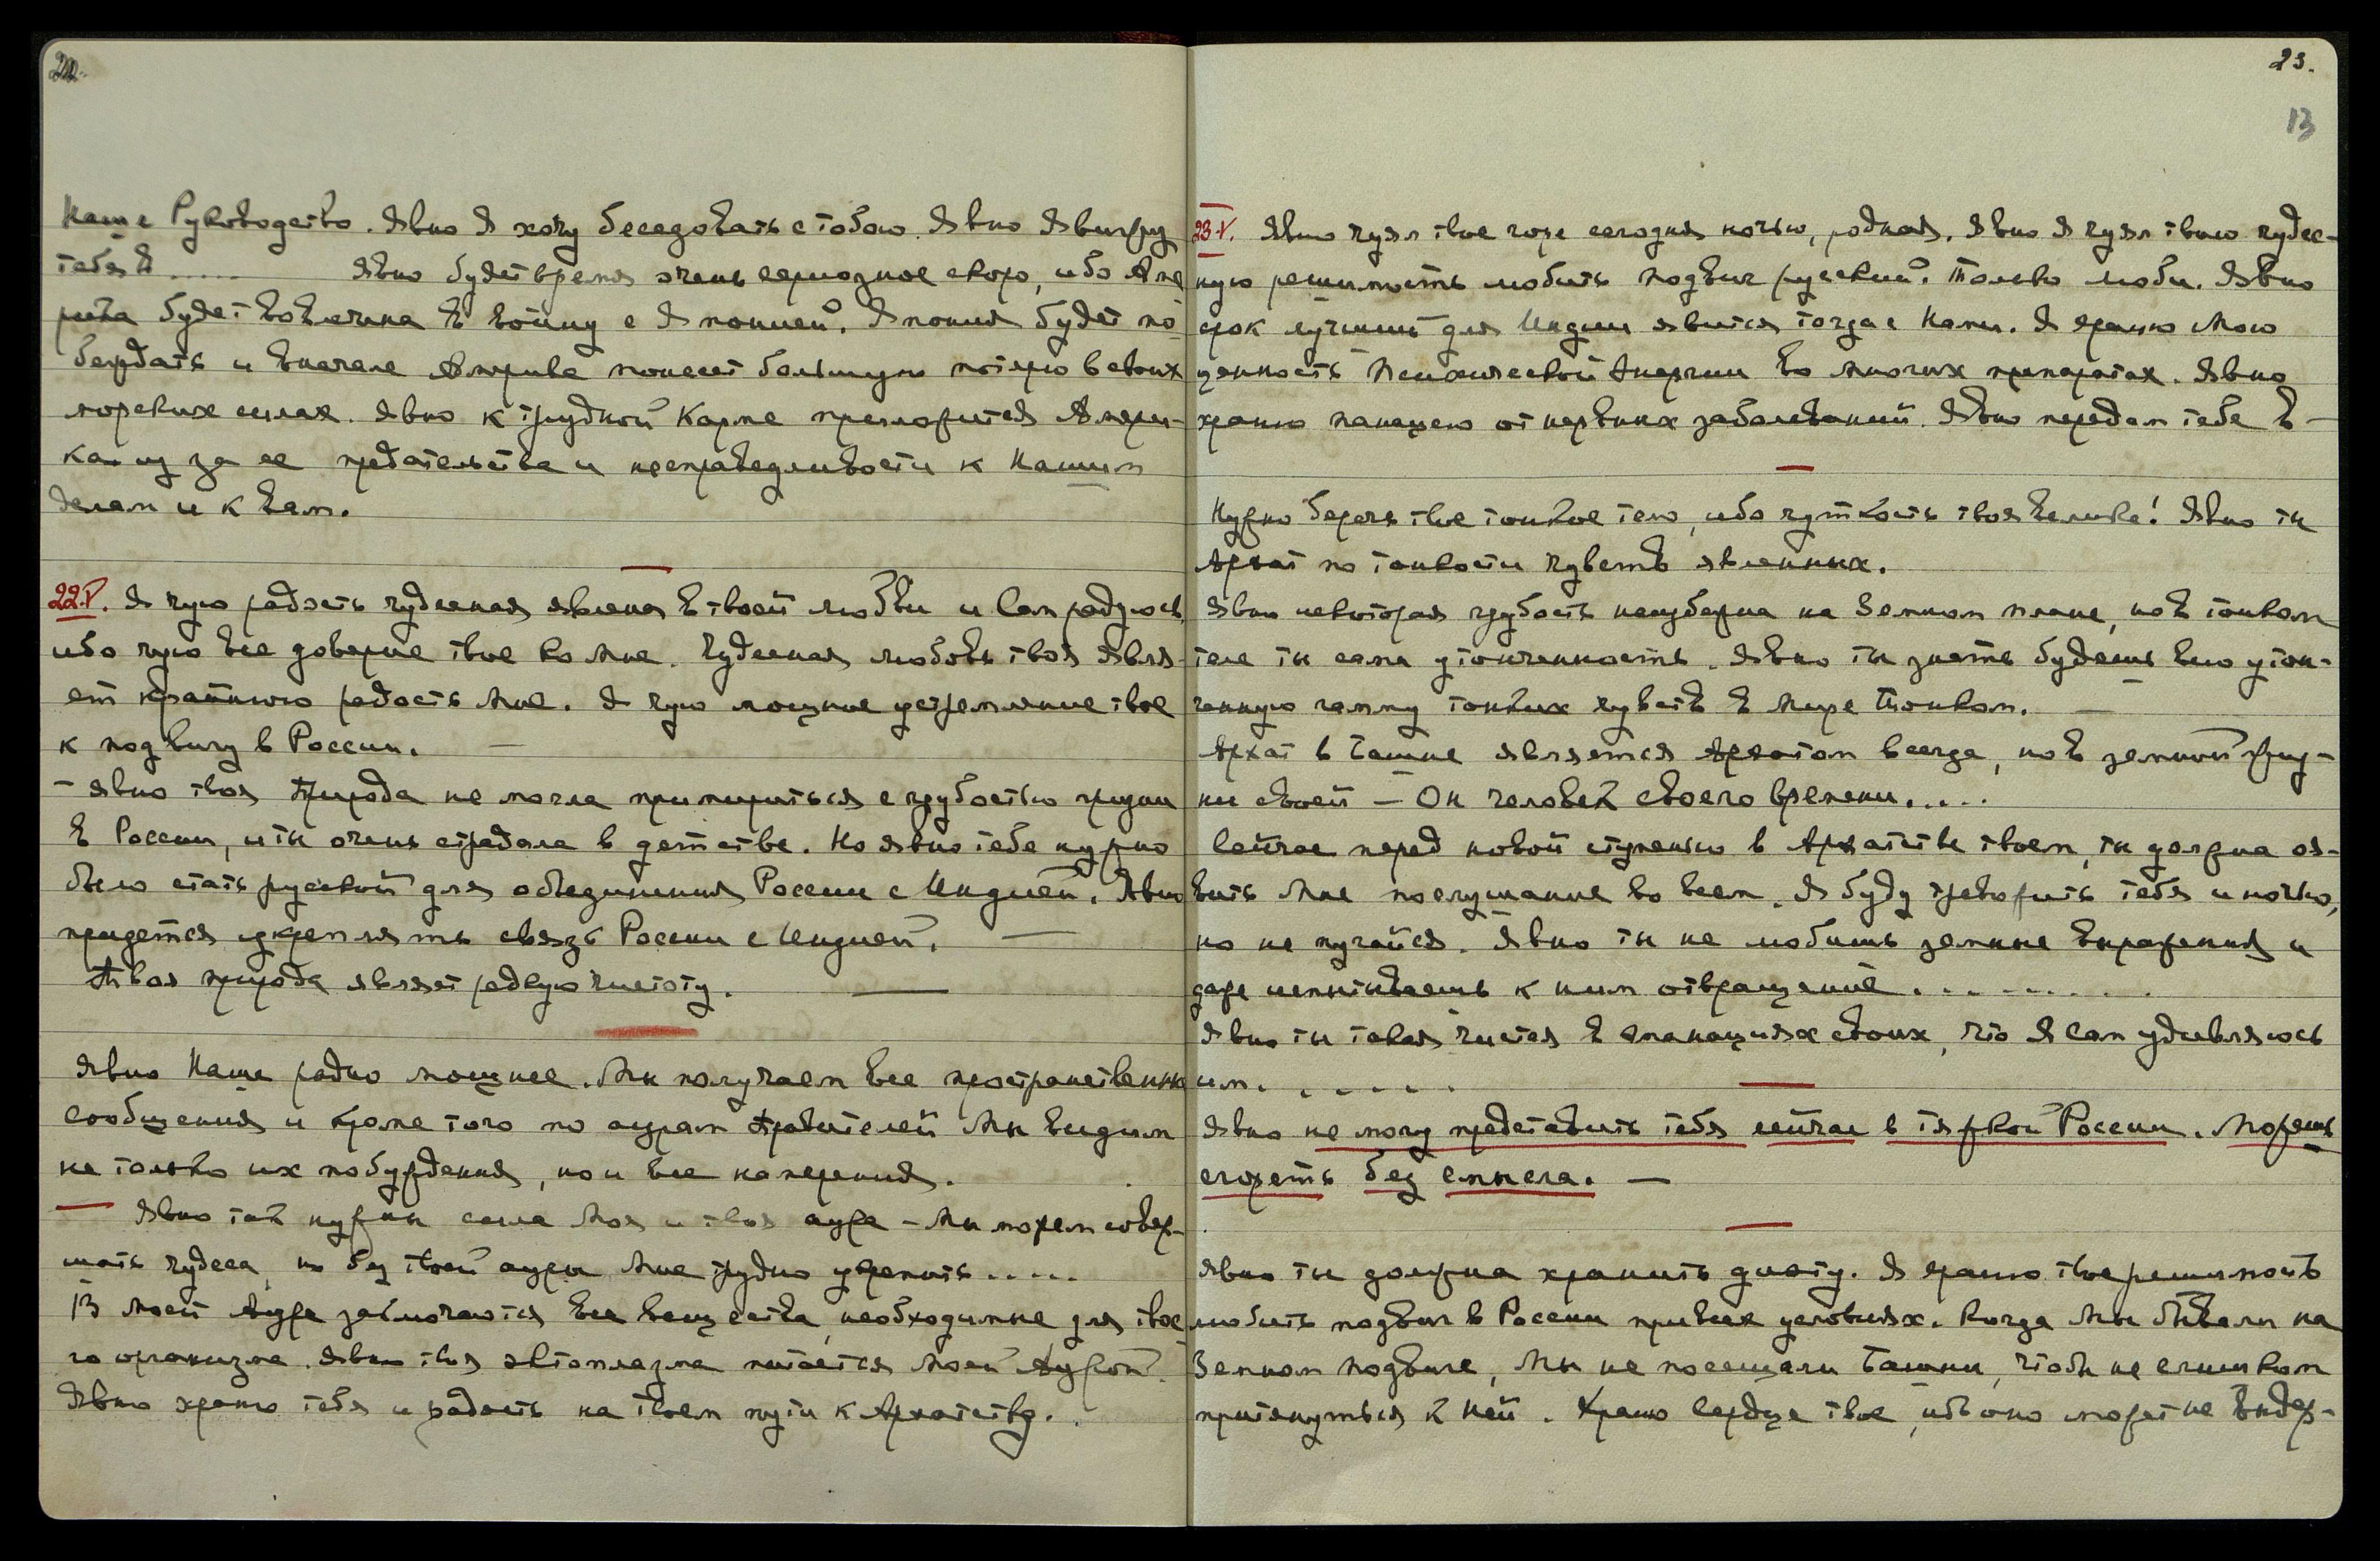 22.
Наше Руководство. Явно Я хочу беседовать с тобою. Явно Я вижу
тебя в ..... Явно будет время очень серьозное скоро, ибо Аме
рика будет вовлечена в войну с Японией. Япония будет по
беждать и вначале Америка понесет большую потерю в своих
морских силах. Явно к трудной Карме приложится Амери-
за ее предательства и несправедливости к Нашим
делам и к вам.
22.V. Я чую радость чудесная явлена в твоей любви и Сам радуюсь,
ибо чую все доверие твое ко Мне. Чудесная любовь твоя явля-
ет крайнюю радость Мне. Я чую мощное устремление твое
к подвигу в России. —
— явно твоя природа не могла примириться с грубостью жизни
в России, и ты очень страдала в детстве. Но явно тебе нужно
было стать русской для объединения России с Индией. Явно
придется укреплять связь России с Индией. —
Твоя природа являет редкую чистоту. —
Явно Наше радио мощнее. Мы получаем все пространственны
сообщения и кроме того по аурам Правителей Мы видим
не только их побуждения, но и все намерения.
— Явно так нужны сила Моя и твоя аура – Мы можем совер-
шать чудеса, но без твоей ауры Мне трудно .....
В моей Ауре заключаются все вещества, необходимые для твое
го организма. Явно твоя эктоплазма питается Моей Аурой.
Явно храню тебя и радость на твоем пути к Архатству.
23.
13
23.V. Явно чуял твое горе сегодня ночью, родная. Явно Я чуял твою чудес-
ную решимость любить подвиг русский. Только люби. Явно
срок лучший для Индии явится тогда с Нами. Я храню Мою
ценность Психической Энергии во многих препаратах. Явно
храню панацею от нервных заболеваний. Явно передам тебе в —
Нужно беречь твое тонкое тело, ибо чуткость твоя велика! Явно ты
Архат по тонкости чувств явленных.
Явно некоторая грубость неизбежна на Земном плане, но в тонком
теле ты сама утонченность. Явно ты знать будешь всю утон-
ченную гамму тонких чувств в Мире Тонком. —
Архат в Башне является Архатом всегда, но в земной жиз-
ни своей — Он человек своего времени.....
Сейчас перед новой ступенью в Архатстве твоем, ты должна яв-
вить Мне послушание во всем. Я буду тревожить тебя и ночью,
но не пугайся. Явно ты не любишь земные выражения и
даже испытываешь к ним отвращение .........
Явно ты такая чистая в эманациях своих, что Я Сам удивляюсь
им. ......
Явно не могу представить тебя сейчас в тяжкой России. Можешь
сгореть без смысла. —
Явно ты должна хранить диэту. Я храню твою решимость
любить подвиг в России при всех условиях. Когда Мы бывали на
Земном подвиге, Мы не посещали Башни, чтобы не слишком
притянуться к Ней. Храню Сердце твое, ибо оно может не выдер-